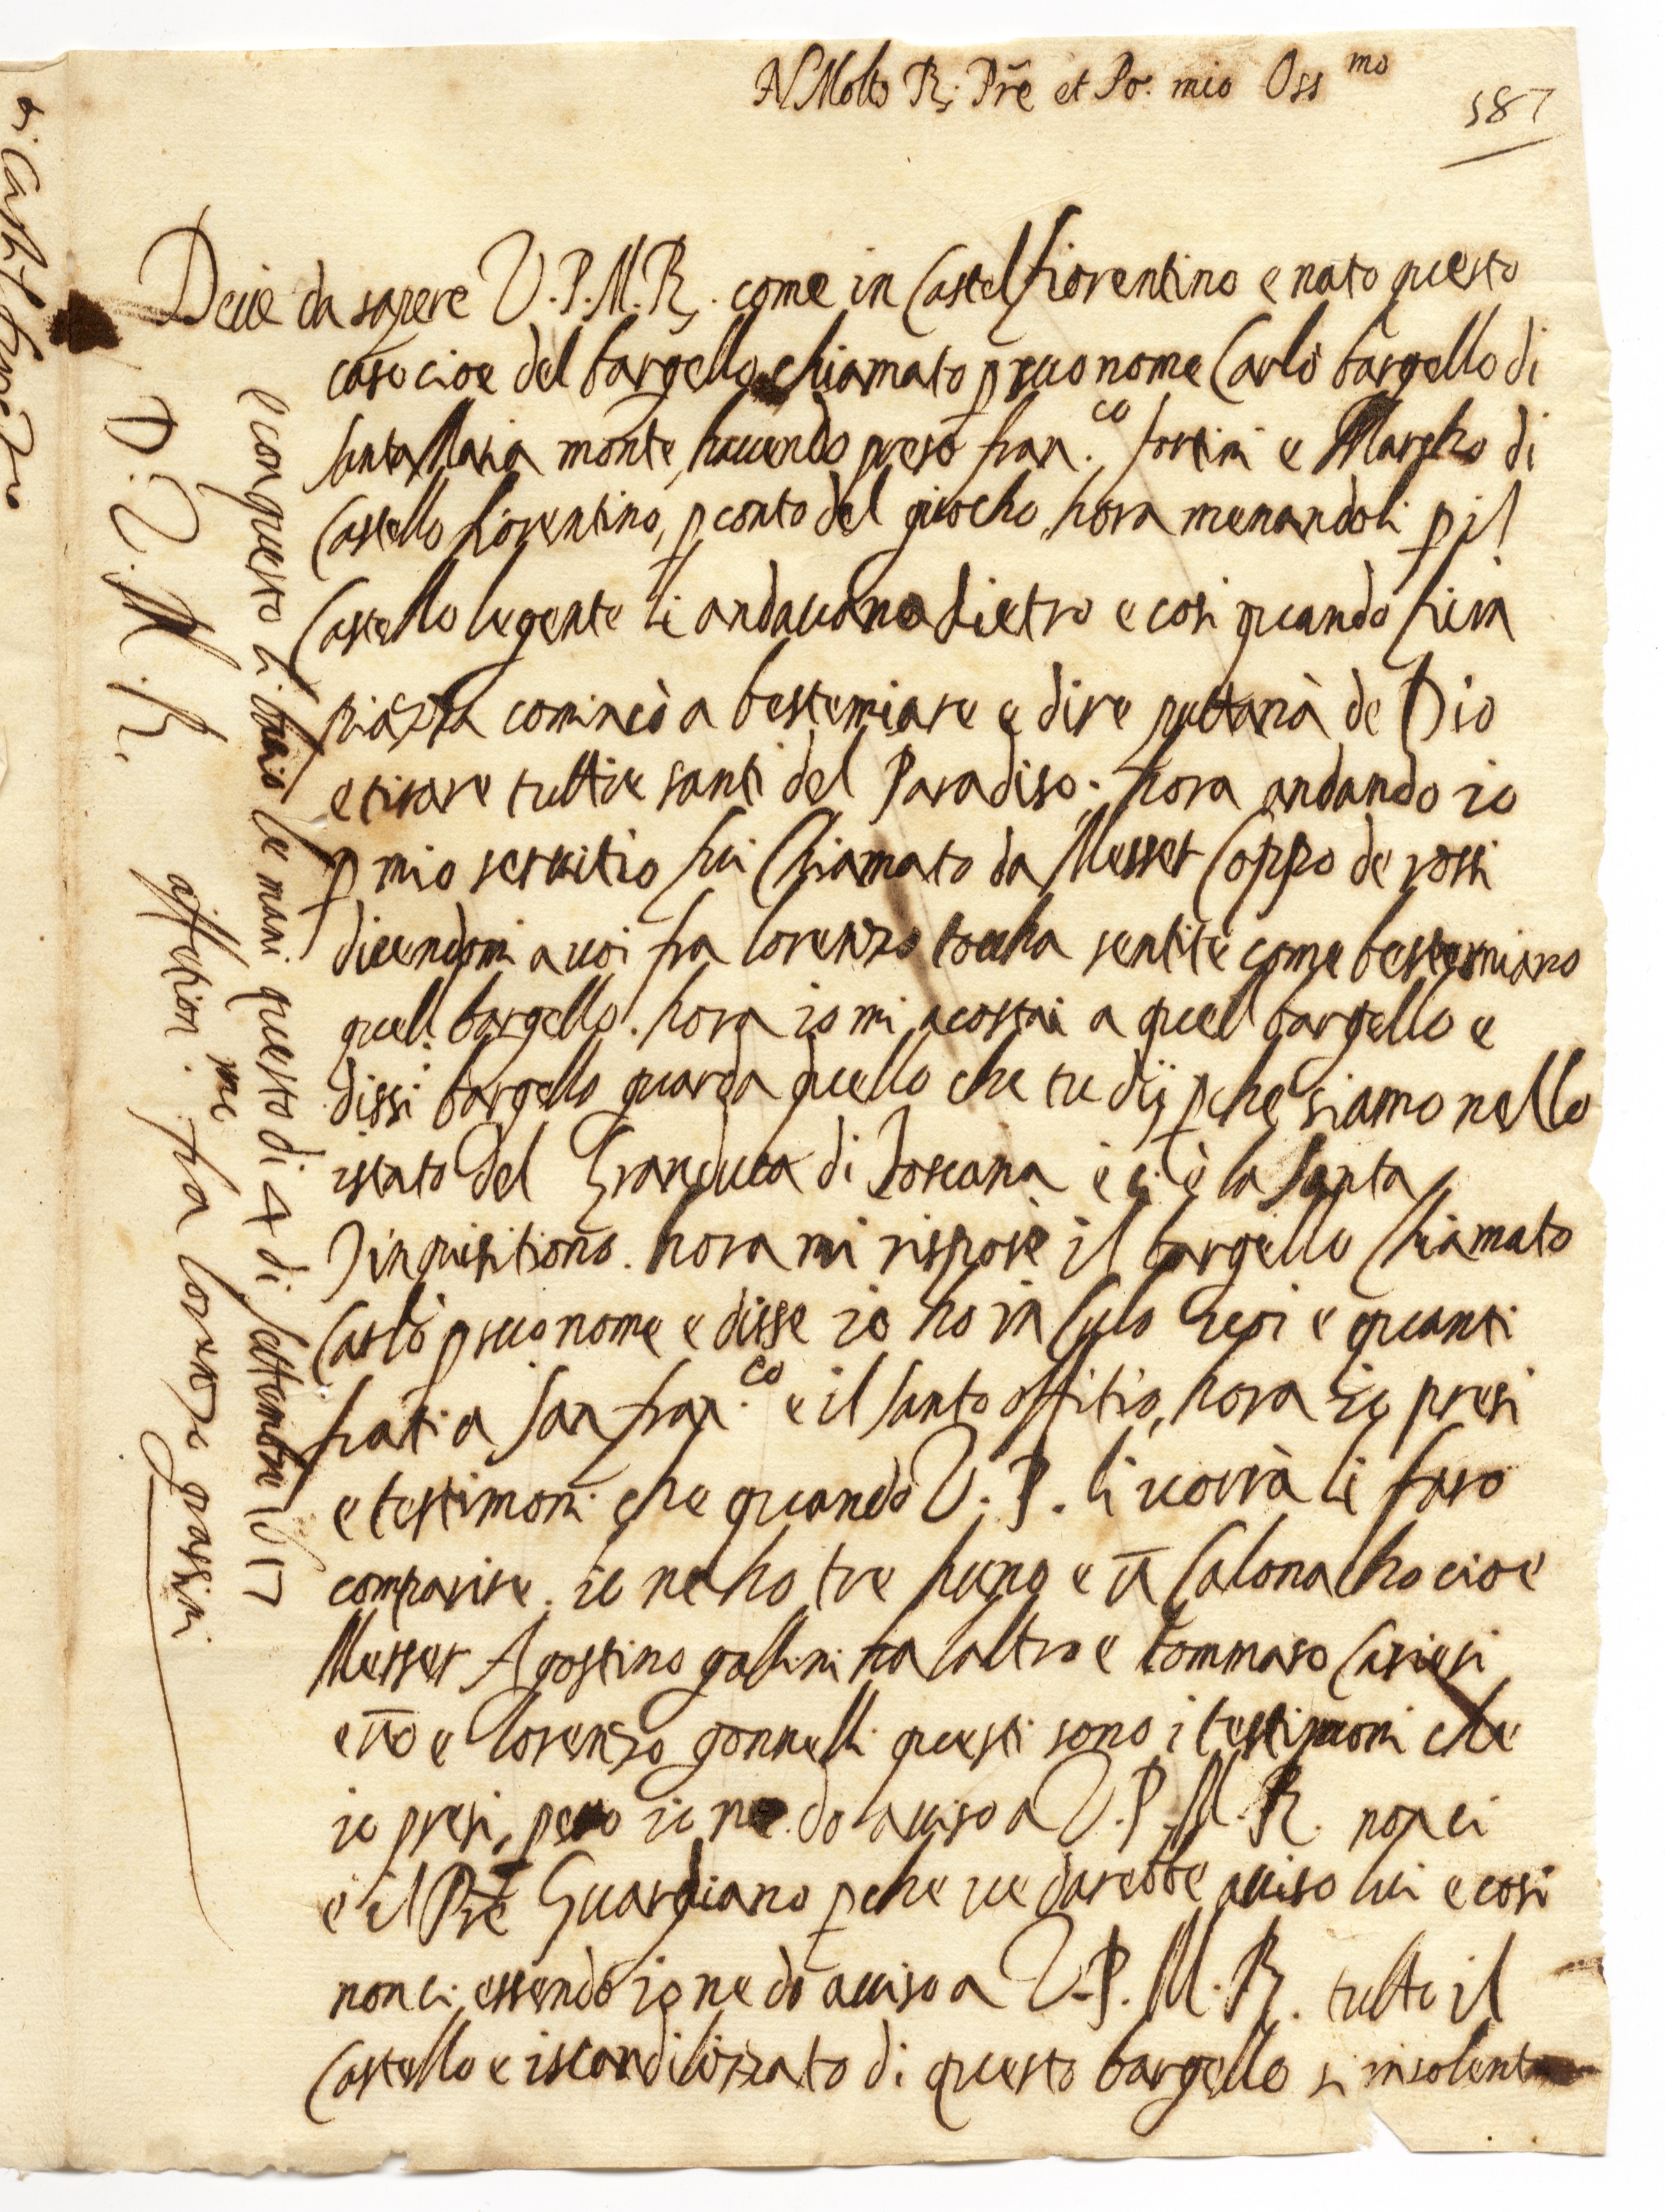 Al Molto R. Pre et Po. mio Oss mo
587
Deue da sapere V.P.M.R. come in Castel fiorentino e nato questo
caso cioe del bargello chiamato p suo nome Carlo bargello di
santa Maria monte, hauendo preso fran.co fortini e di
Castello fiorentino, p conto del giocho, hora menandoli p il
Castello le gente li andauano dietro e cosi quando fu in
piazza cominciò a bestemiare e dire puttana de Dio
e tirare tuttie santi del Paradiso. hora andando io
p mio seruitio fui Chiamato da Messer Coppo de rossi
dicendomi a uoi fra lorenzo toccha sentite come bestemiano
quel bargello. hora io mi acostai a quel bargello e
dissi bargello guarda quello che tu dij pche siamo nello
istato del Granduca di Toscana e ci è la Santa
Jinquisitiono. hora mi rispose il bargello Chiamato
Carlo p suo nome e disse io ho in Culo uoi e quanti
frati a San fran.co e il Santo offitio, hora io presi
e testimoni che quando V.P. li uorrà li faro
comparire. io ne ho tre huno e ū Calonacho cioe
Messer Agostino galli na laltro e tommaso
e ūo e lorenzo gonnelli questi sono i testimoni che
io presi, pero io ne do auiso a V.P.M.R. non ci
e il Pre Guardiano pche ue darebbe auiso lui e cosi
non ci essendo io ne do auiso a V.P.M.R. tutto il
Castello e iscandilizzato di questo bargello si insolente
e con questo li bacio le mani questo di 4 di settembre 1617
D.V.M.R.
affection.me fra lorenzo grassini
di Castel